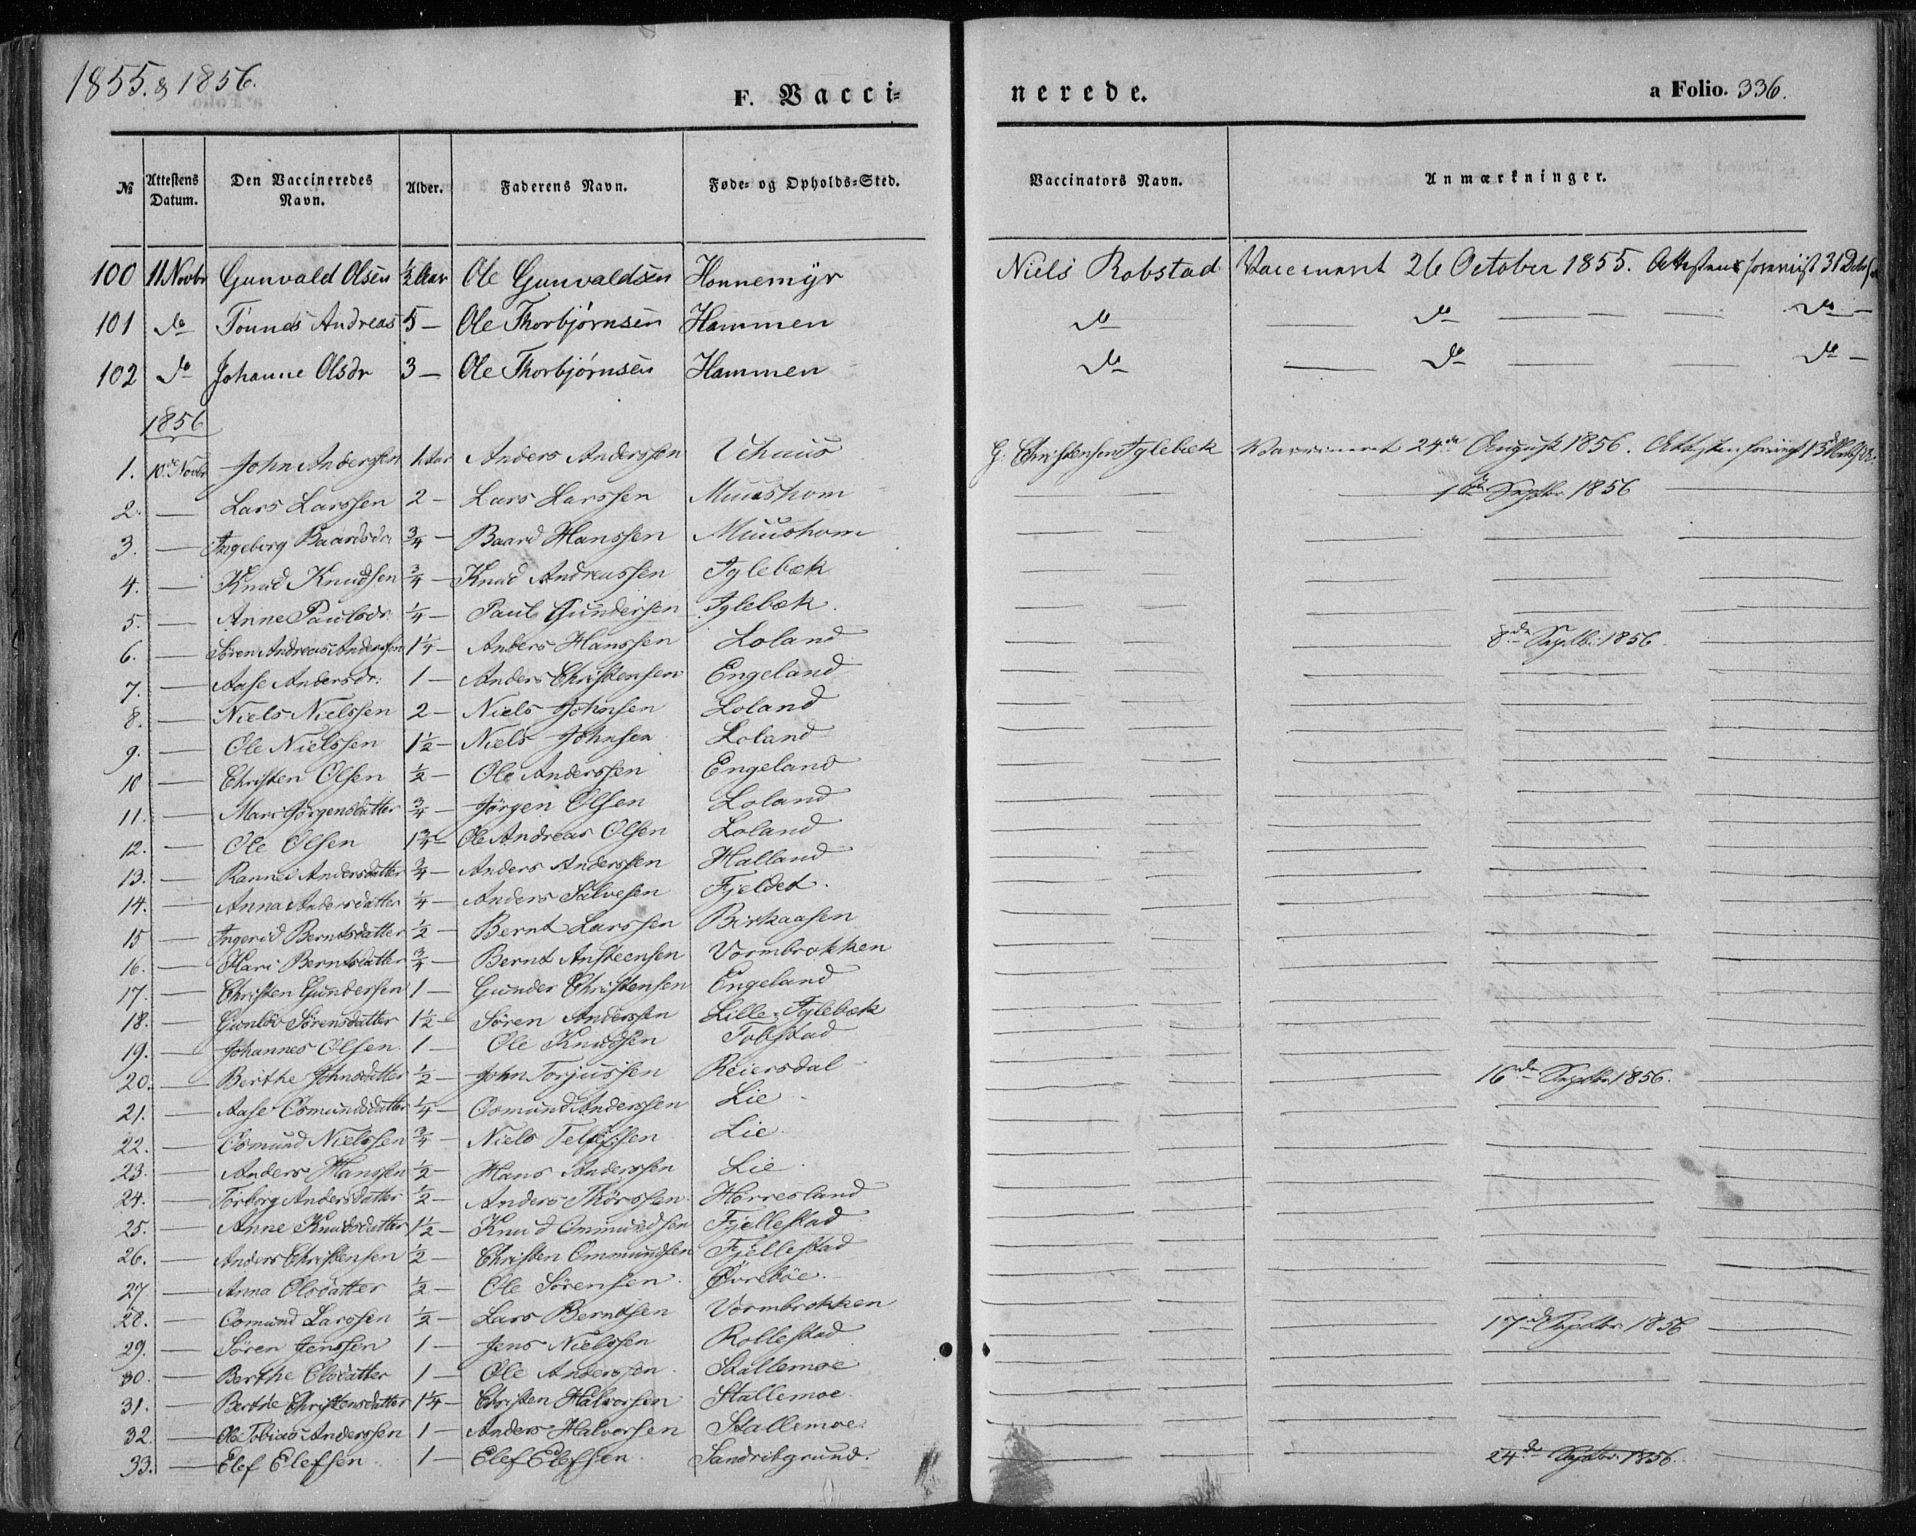 1855. & 1856.
F. Vacci- nerede. a Folio. 336.
№ Attestens Datum. Den Vaccineredes Navn. Alder. Faderens Navn. Føde- og Opholds-Sted. Vaccinators Navn. Anmærkninger.
100 11 Novbr Gunvald Olsen ½ Aar Ole Gunvaldsen Honnemyr Niels Robstad Vaccineret 26 October 1855. Attesten foreviist 31
101 do Tønnes Andreas 5 — Ole Thorbjørnsen Hammen do — do — — do —
102 do Johanne Olsdr 3 — Ole Thorbjørnsen Hammen do — do — — do —
1856
1. 10de Novbr John Anderssen 1 Aar Anders Anderssen Uhauus G. Christensen Iglebæk Vaccineret 24de August 1856. Attesten foreviist 13
2. — Lars Larssen 2 — Lars Larssen Muushom — — — 1ste Septbr. 1856 —
3. — Ingeborg Baardsdr ¾ — Baard Hanssen Muushom — — — — —
4. — Knud Knudsen ¾ — Knud Andreassen Iglebæk — — — — —
5. — Anne Paulsdr. ¼ — Paul Gundersen Iglebæk. — — — — —
6. — Søren Andreas Anderssen 1¼ — Anders Hanssen Loland — — — 8de Septbr. 1856. —
7. — Aase Andersdr. 1 — Anders Christensen Engeland — — — — —
8. — Niels Nielssen 2 — Niels Johnsen Loland — — — — —
9. — Ole Nielssen 1½ — Niels Johnsen Loland — — — — —
10 — Christen Olsen ½ — Ole Anderssen Engeland — — — — —
11. — Mari Jørgensdatter ¾ — Jørgen Olsen Loland — — — — —
12. — Ole Olsen 1¾ — Ole Andreas Olsen Loland — — — — —
13. — Rannei Andersdatter ¾ — Anders Anderssen Halland — — — — —
14. — Anna Andersdatter ¼ — Anders Salvesen Fjeldet. — — — — —
15 — Ingerid Berntsdatter ½ — Bernt Larssen Birkaasen — — — — —
16. — Kari Berntsdatter ¾ — Bernt Ansteensen Vormbrokken — — — — —
17. — Christen Gundersen 1 — Gunder Christensen Engeland — — — — —
18. — Gunlov Sørensdatter 1½ — Søren Anderssen Lille-Iglebæk — — — — —
19. — Johannes Olsen. 1 — Ole Knudsen Tobstad — — — — —
20. — Berthe Johnsdatter ½ — John Torjussen Reiersdal — — — 16de Septbr. 1856. —
21. — Aase Osmundsdatter ¼ — Osmund Anderssen Lie — — — — —
22. — Osmund Nielssen ¾ — Niels Lie — — — — —
23. — Anders Hanssen ½ — Hans Anderssen Lie. — — — — —
24. — Torborg Andersdatter ½ — Anders Thorssen Horresland — — — — —
25. — Anne Knudsdatter 1½ — Knud Ommundsen Fjellestad — — — — —
26. — Anders Christensen ½ — Christen Ommundsen Fjellestad — — — — —
27 — Anna Olsdatter ½ — Ole Sørensen. Øvrebøe. — — — — —
28. — Osmund Larssen ½ — Lars Berntsen Vormbrokken — — — 17de Septbr. 1856 —
29. — Søren Jenssen 1 — Jens Nielssen Rollestad — — — — —
30. — Berthe Olsdatter 1 — Ole Anderssen. Stallemoe — — — — —
31. — Berthe Christensdatter 1¼ — Christen Halvorsen Stallemoe. — — — — —
32. — Ole Tobias Anderssen 1 — Anders Halvorsen Stallemoe. — — — — —
33. — Elef Elefsen 1 — Elef Elefsen. Sandribgrund. — — — 24de Septbr. 1856. —